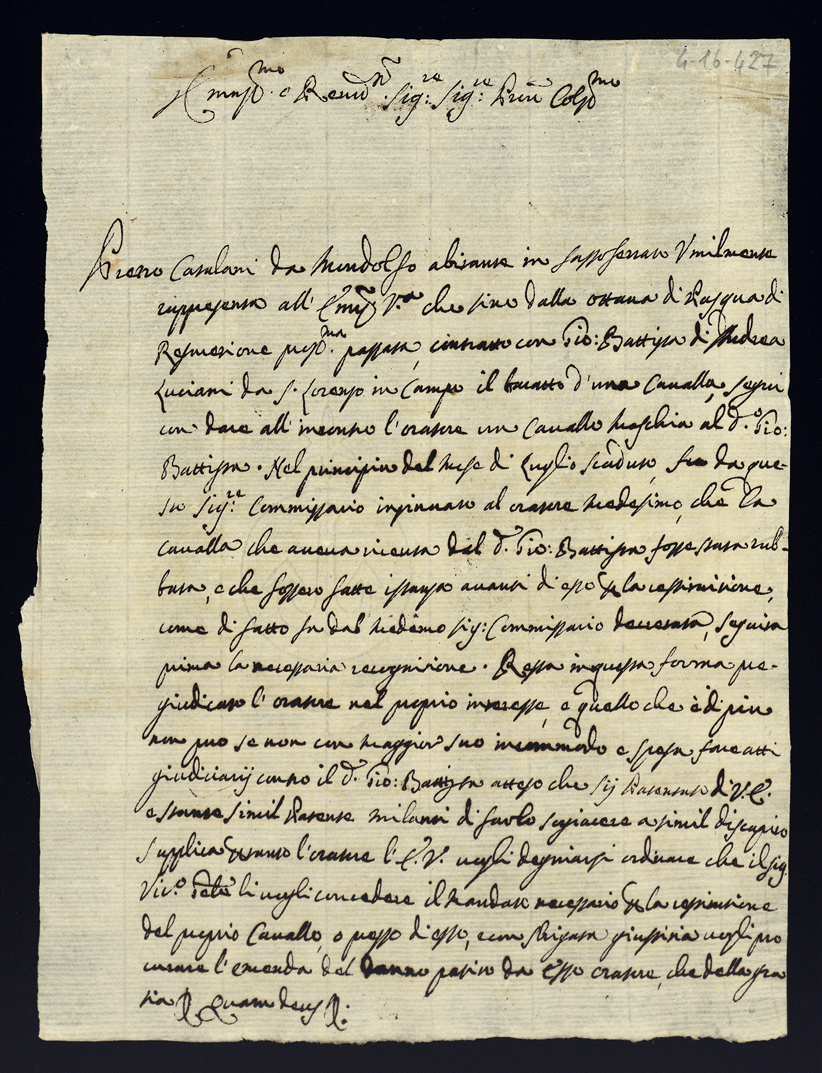 4-16-427
Emin.mo e Reuer.mo Sig:re Sig:re Pron Col.mo
Pietro Catalani da Mondolfo abitante in Sassoferrato Vmilmente
rappresenta all' Em: V.a che sino dalla ottaua di Pasqua di
Resurezione pros.ma passata, contratto con Gio: Battista di Andrea
Luciani da S. Lorenzo in Campo il baratto d'una Caualla, seguì
con dare all' incontro l'oratore un Cauallo Maschio al d.o Gio:
Battista. Nel principio del Mese di Luglio scaduto, fu da que-
sto Sig:re Commissario insinuato al oratore Medesimo, che la
caualla che aueua riceuta dal d.o Gio: Battista fosse stata rub-
bata, e che fossero fatte istanze auanti di esso p la restituzione,
come di fatto fu dal Medemo Sig: Commissario decretata, seguita
prima la necessaria recognizione. Resta in questa forma pre-
giudicato l'oratore nel proprio interesse, e quello che è di più
non può se non con Maggior suo incommodo e spesa fare atti
giudiziarij contro il d.o Gio: Battista atteso che sij Patentato di V.E.
e stante simil Patente di farlo sogiacere a simil discapito
Supplica p tanto l'oratore l'E.V. uogli degniarsi ordinare che il Sig.
Vic.o li uogli concedere il Mandato necessario p la restituzione
del proprio Cauallo, o prezzo di esso, e con sbrigata giustizia uogli pro
curare l'emenda del danno patito da esso oratore, che della gra
zia Quam Deus